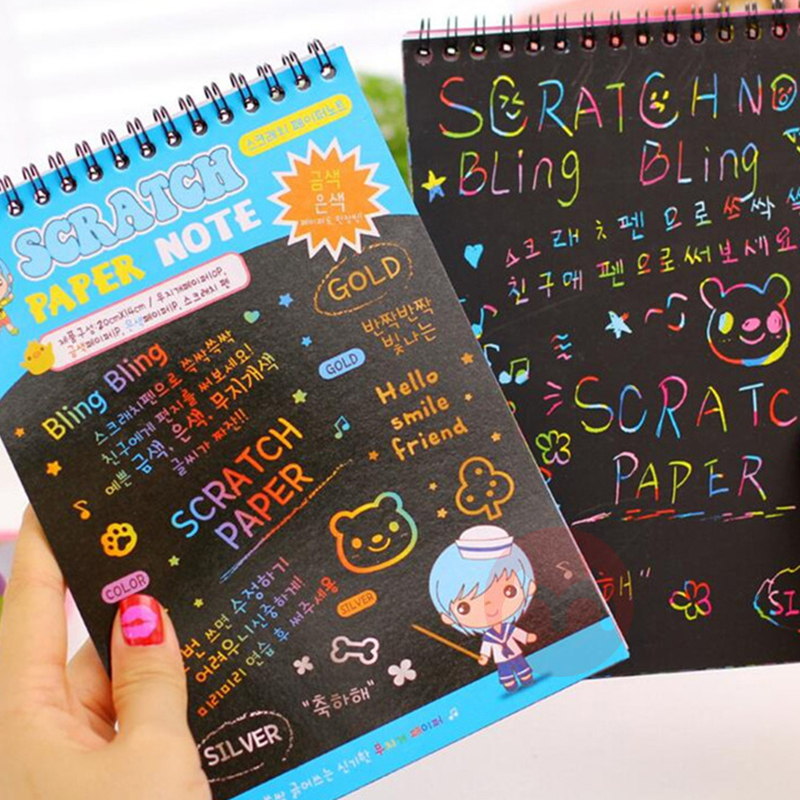 스크래치 페이퍼노트
SCRATCH
PAPER NOTE
금색
은색
제품구성:20cmX14cm / 무지개페이퍼10P,
금색페이퍼1P, 은색페이퍼1P, 스크래치 펜
GOLD
Bling Bling
스크래치펜으로 쓱싹쓱싹
친구에게 편지를 써보세요!
예쁜 금색, 은색, 무지개색
글씨가 짜잔!!
반짝반짝
빛나는
GOLD
Hello
smile
friend
SCRATCH
PAPER
COLOR
쓰면 수정하기
어려우니 신중하게!
미리미리 연습 후 써주세용
SILVER
"축하해"
SILVER
긁어쓰는 신기한 무지개 페이퍼
SCRATCH NO
Bling Bling
스크래치펜으로 쓱싹
친구에게 펜으로 써보세요
SCRATC
PAPER
해"
SI